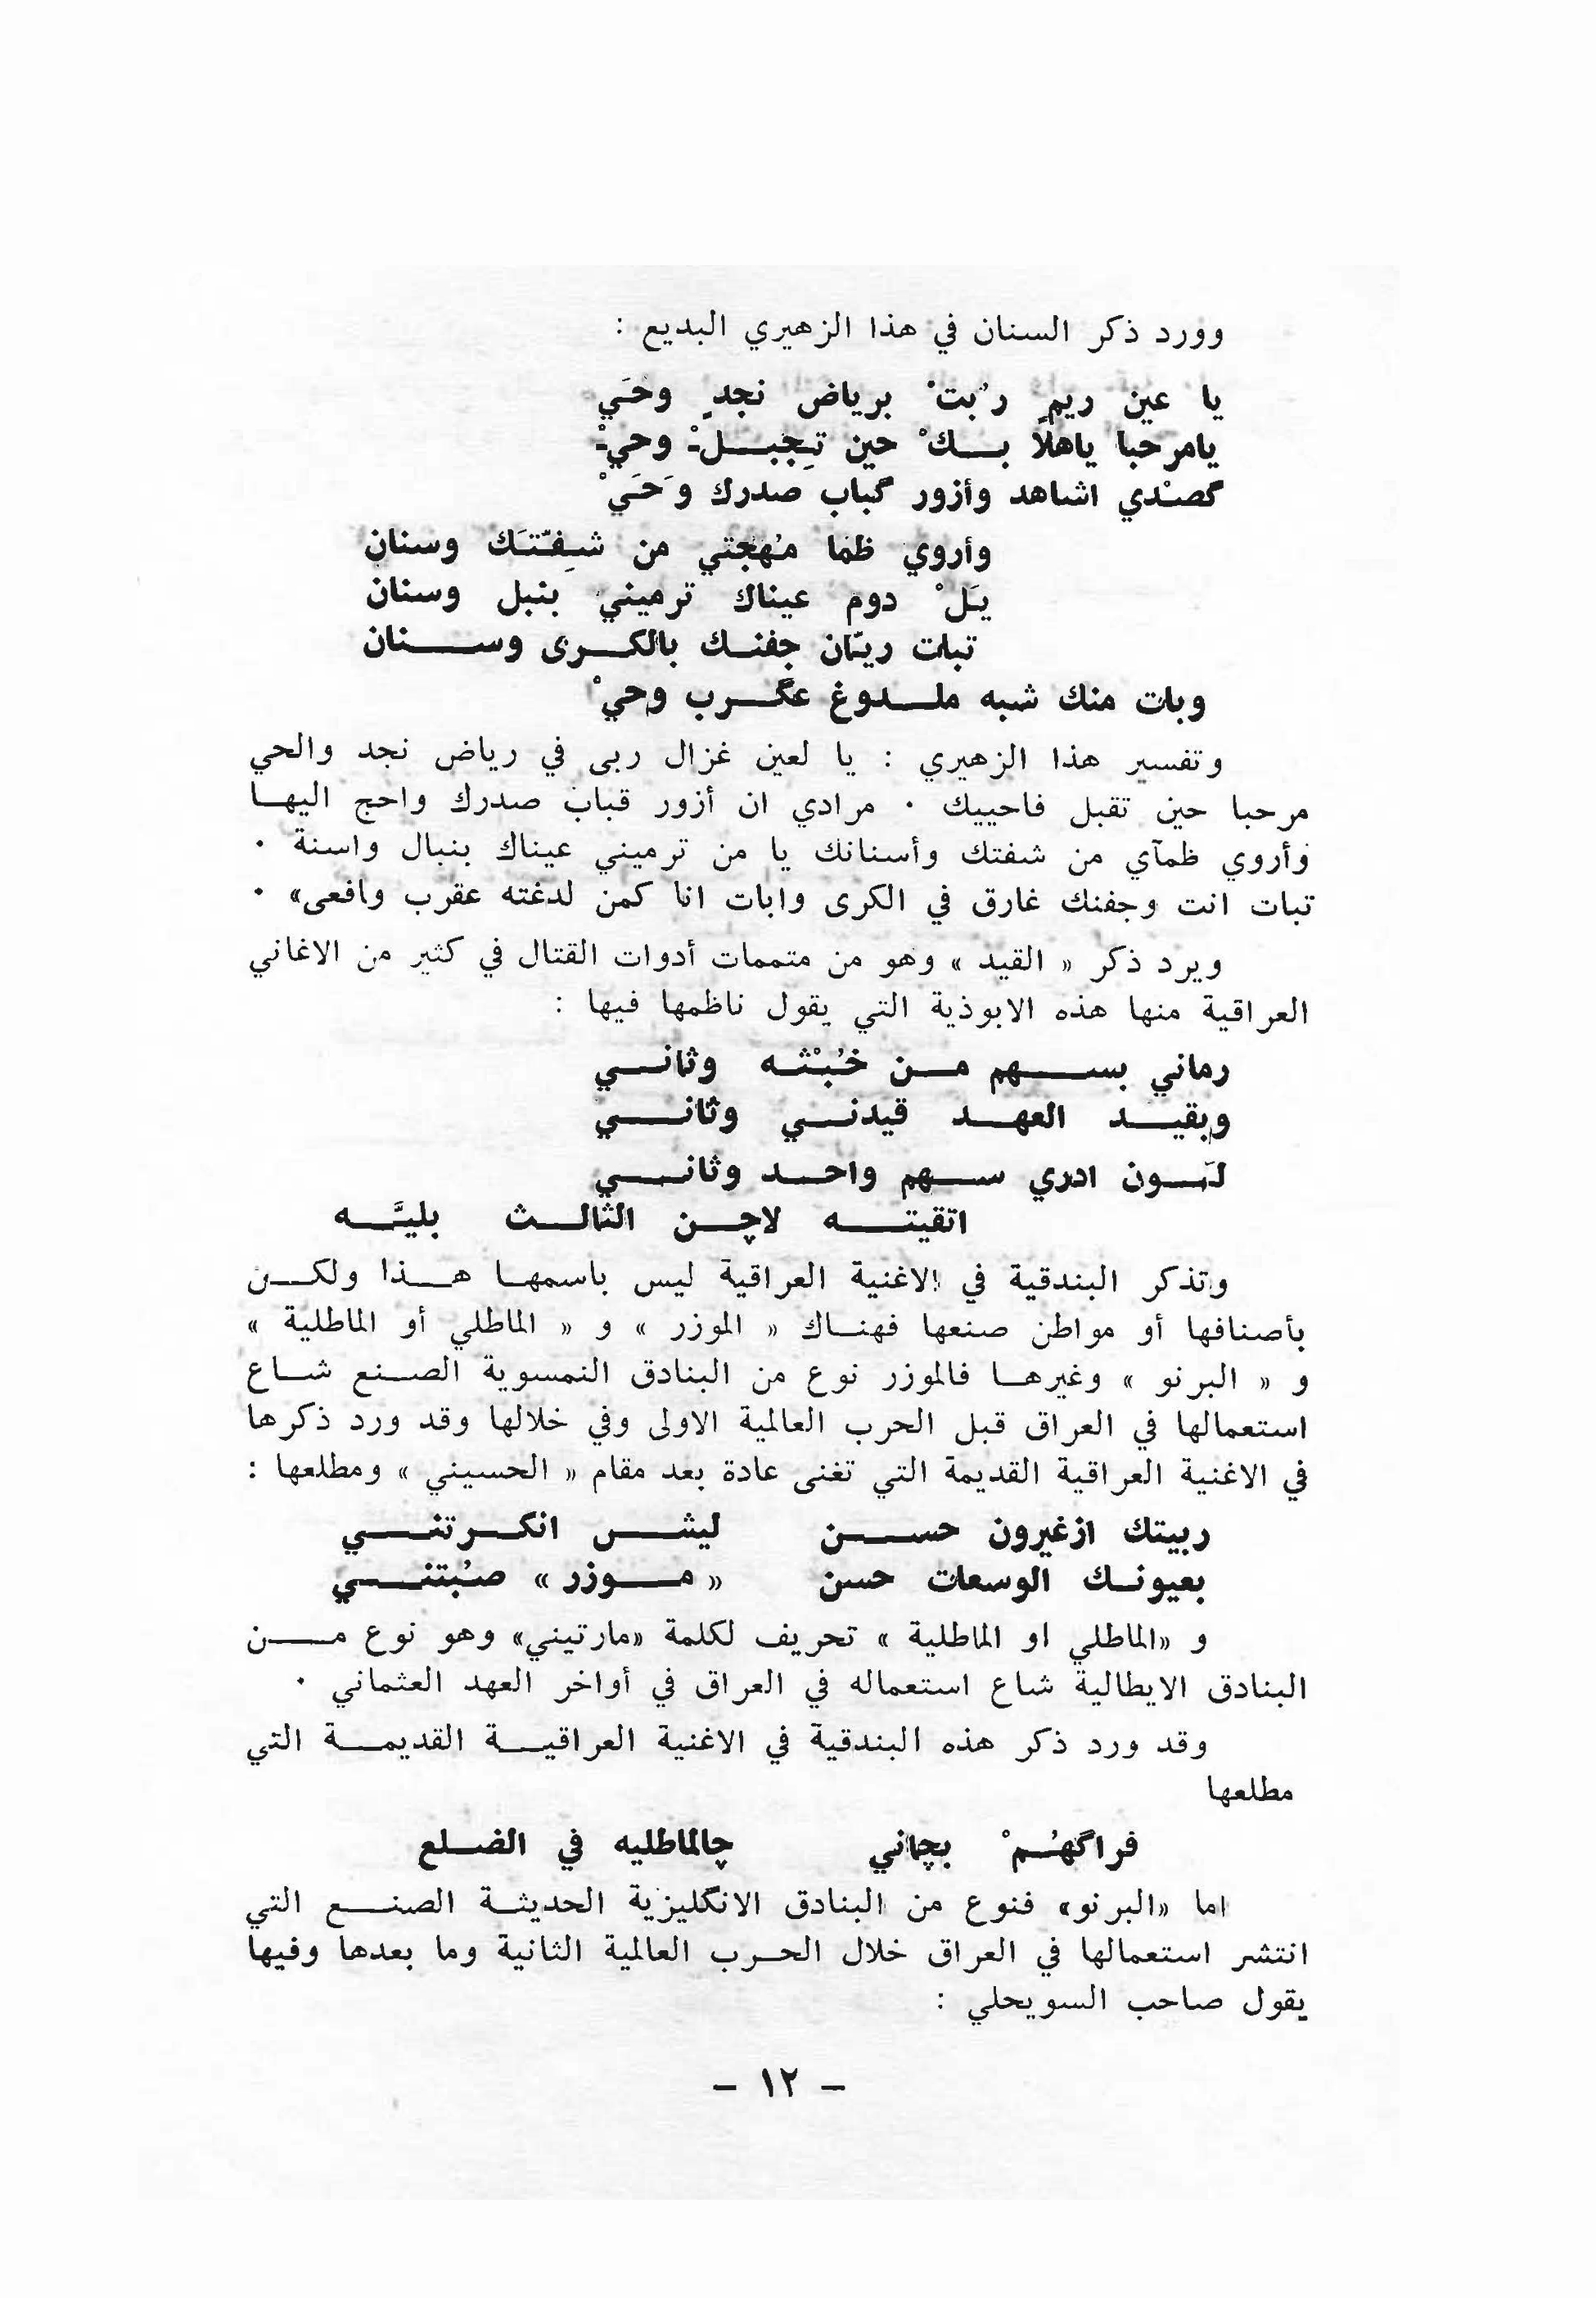 وورد ذكر السنان في هذا الزهيري البديع :
يا عين ريمٍ رُبتْ برياض نجدٍ وحَي
يامرحبا ياهلا بك ْ حين تِجبلْ وحيْ
گصْدي اشاهد وأزور گباب صدرك وَحَيْ
وأروي ظما مُهجتي من شِفّتَك وسنان
يَلْ دوم عيناك ترميني بنبل وسنان
تبات ريّان جفنك بالكرى وسنان
وبات منك شبه ملدوغ عگرب وحيْ
وتفسير هذا الزهيري : يا لعين غزال ربى في رياض نجد والحي
مرحبا حين تقبل فاحييك . مرادي ان أزور قباب صدرك واحج اليها
وأروي ظمآي من شفتك وأسنانك يا من ترميني عيناك بنبال واسنة .
تبات انت وجفنك غارق في الكرى وابات انا كمن لدغته عقرب وافعى» .
ويرد ذكر « القيد » وهو من متممات أدوات القتال في كثير من الاغاني
العراقية منها هذه الابوذية التي يقول ناظمها فيها :
رماني بسهم من خُبْثه وثاني
وبقيد العهد قيدني وثاني
لون ادري سهم واحد وثاني
اتقيته لاچن الثالث بليَّه
وتذكر البندقية في الاغنية العراقية ليس باسمها هذا ولكن
بأصنافها أو مواطن صنعها فهناك « الموزر » و « الماطلي أو الماطلية »
و « البرنو » وغيرها فالموزر نوع من البنادق النمسوية الصنع شاع
استعمالها في العراق قبل الحرب العالمية الاولى وفي خلالها وقد ورد ذكرها
في الاغنية العراقية القديمة التي تغنى عادة بعد مقام « الحسيني » ومطلعها :
ربيتك ازغيرون حسن ليش انكرتني
بعيونك الوسعات حسن « موزر » صُبتني
و «الماطلي او الماطلية » تحريف لكلمة «مارتيني» وهو نوع من
البنادق الايطالية شاع استعماله في العراق في أواخر العهد العثماني .
وقد ورد ذكر هذه البندقية في الاغنية العراقية القديمة التي
مطلعها
فراگهُمْ بچاني چالماطليه في الضلع
اما «البرنو» فنوع من البنادق الانگليزية الحديثة الصنع التي
انتشر استعمالها في العراق خلال الحرب العالمية الثانية وما بعدها وفيها
يقول صاحب السويحلي :
- ١٢ -